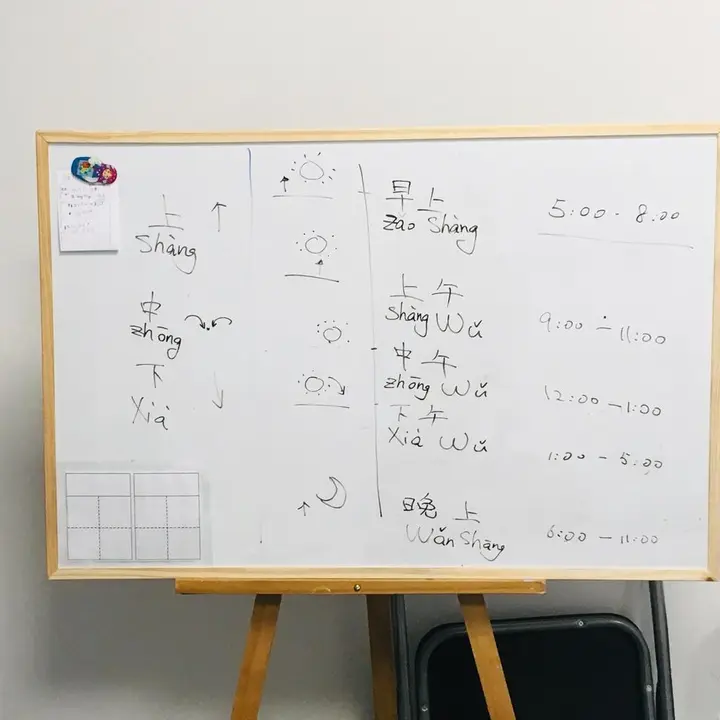 上
shàng
中
zhōng
下
Xià
早上
zǎo shàng
5:00 - 8:00
上午
shàng wǔ
9:00 - 11:00
中午
zhōng wǔ
12:00 - 1:00
下午
Xià wǔ
1:00 - 5:00
晚上
wǎn shāng
6:00 - 11:00